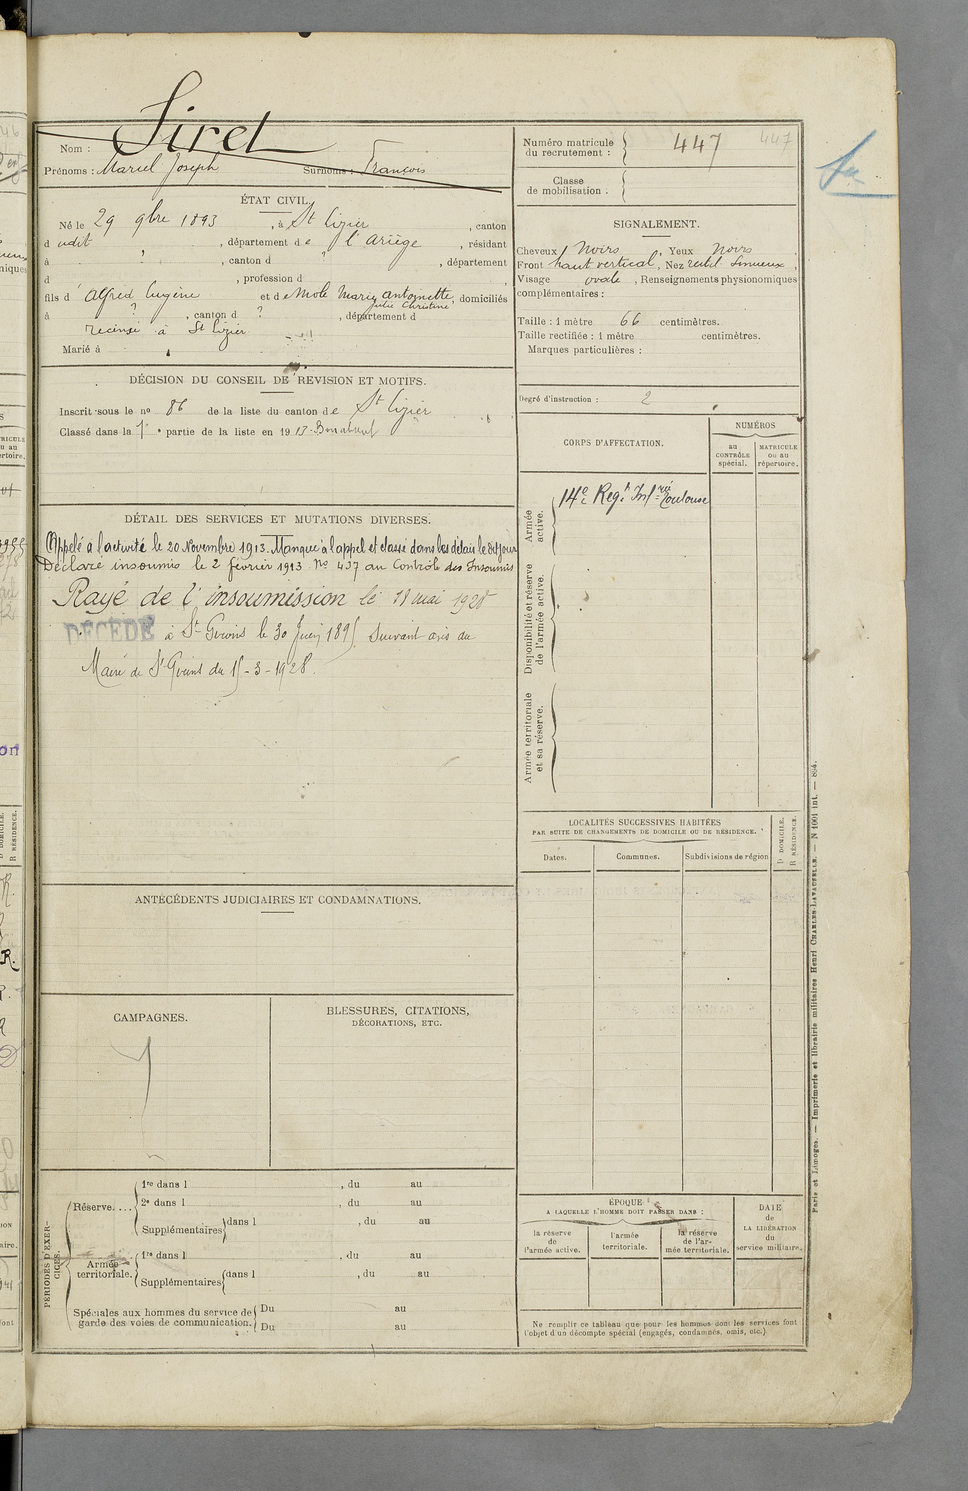 Nom : Siret
Prénoms : Marcel Joseph Surnoms : François
ÉTAT CIVIL
Né le 29 9bre 1893, à St Lizier, canton
d udit, département de l'Ariège, résidant
à ?, canton d ?, département
d , profession d ,
fils d' Alfred Eugène et de Mole Marie Antoinette, domiciliés
Julie Christine
à ?, canton d ?, département d
recensé à St Lizier
Marié à
DÉCISION DU CONSEIL DE REVISION ET MOTIFS.
Inscrit sous le no 86 de la liste du canton de St Lizier
Classé dans la 1e partie de la liste en 1913. Bon absent
DÉTAIL DES SERVICES ET MUTATIONS DIVERSES.
Appelé à l'activité le 20 Novembre 1913. Manque à l'appel et classé dans les délais le dit jour
Déclaré insoumis le 2 février 1913 No 437 au Contrôle des Insoumis
Rayé de l'insoumission le 18 mai 1928
DÉCÉDÉ à St Girons le 30 Juin 1895 Suivant avis du
Maire de St Girons du 15-3-1928.
ANTÉCÉDENTS JUDICIAIRES ET CONDAMNATIONS.
CAMPAGNES.
BLESSURES, CITATIONS,
DÉCORATIONS, ETC.
PÉRIODES D'EXERCICES.
Réserve....
1re dans l , du au
2e dans l , du au
Supplémentaires dans l , du au
Armée
territoriale.
1re dans l , du au
Supplémentaires dans l , du au
Spéciales aux hommes du service de
garde des voies de communication.
Du au
Du au
Numéro matricule
du recrutement : 447 447
Classe
de mobilisation :
SIGNALEMENT.
Cheveux Noirs, Yeux Noirs
Front haut vertical, Nez rectil. Sinueux,
Visage ovale, Renseignements physionomiques
complémentaires :
Taille : 1 mètre 66 centimètres.
Taille rectifiée : 1 mètre centimètres.
Marques particulières :
Degré d'instruction : 2
CORPS D'AFFECTATION.
NUMÉROS
au
CONTRÔLE
spécial.
MATRICULE
ou au
répertoire.
Armée
active.
14e Regt Infrie Toulouse
Disponibilité et réserve
de l'armée active.
Armée territoriale
et sa réserve.
LOCALITÉS SUCCESSIVES HABITÉES
PAR SUITE DE CHANGEMENTS DE DOMICILE OU DE RÉSIDENCE.
Dates.
Communes.
Subdivisions de région
D DOMICILE.
R RÉSIDENCE.
ÉPOQUE
A LAQUELLE L'HOMME DOIT PASSER DANS :
la réserve
de
l'armée active.
l'armée
territoriale.
la réserve
de l'ar-
mée territoriale.
DATE
de
LA LIBÉRATION
du
service militaire.
Ne remplir ce tableau que pour les hommes dont les services font
l'objet d'un décompte spécial (engagés, condamnés, omis, etc.)
Paris et Limoges. — Imprimerie et librairie militaires Henri CHARLES-LAVAUZELLE. — N 1001 int. — 894.